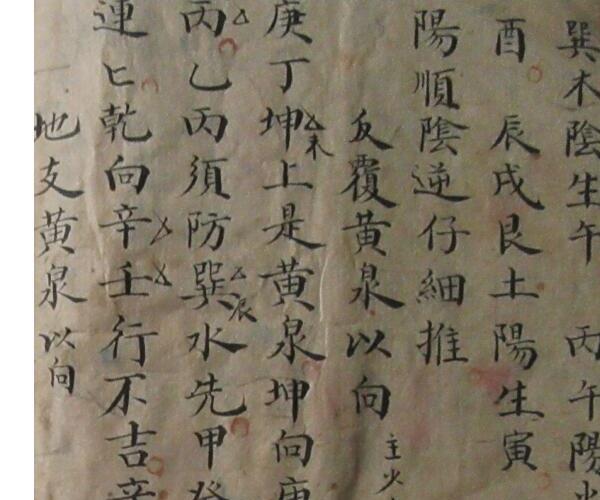 巽木陰生午 丙午陽
酉 辰戌艮土陽生寅
陽順陰逆仔細推
反覆黃泉以向
庚丁坤上是黃泉坤向庚
未
丙乙丙須防巽水先甲癸
辰
連匕乾向辛壬行不吉辛
地支黃泉以向